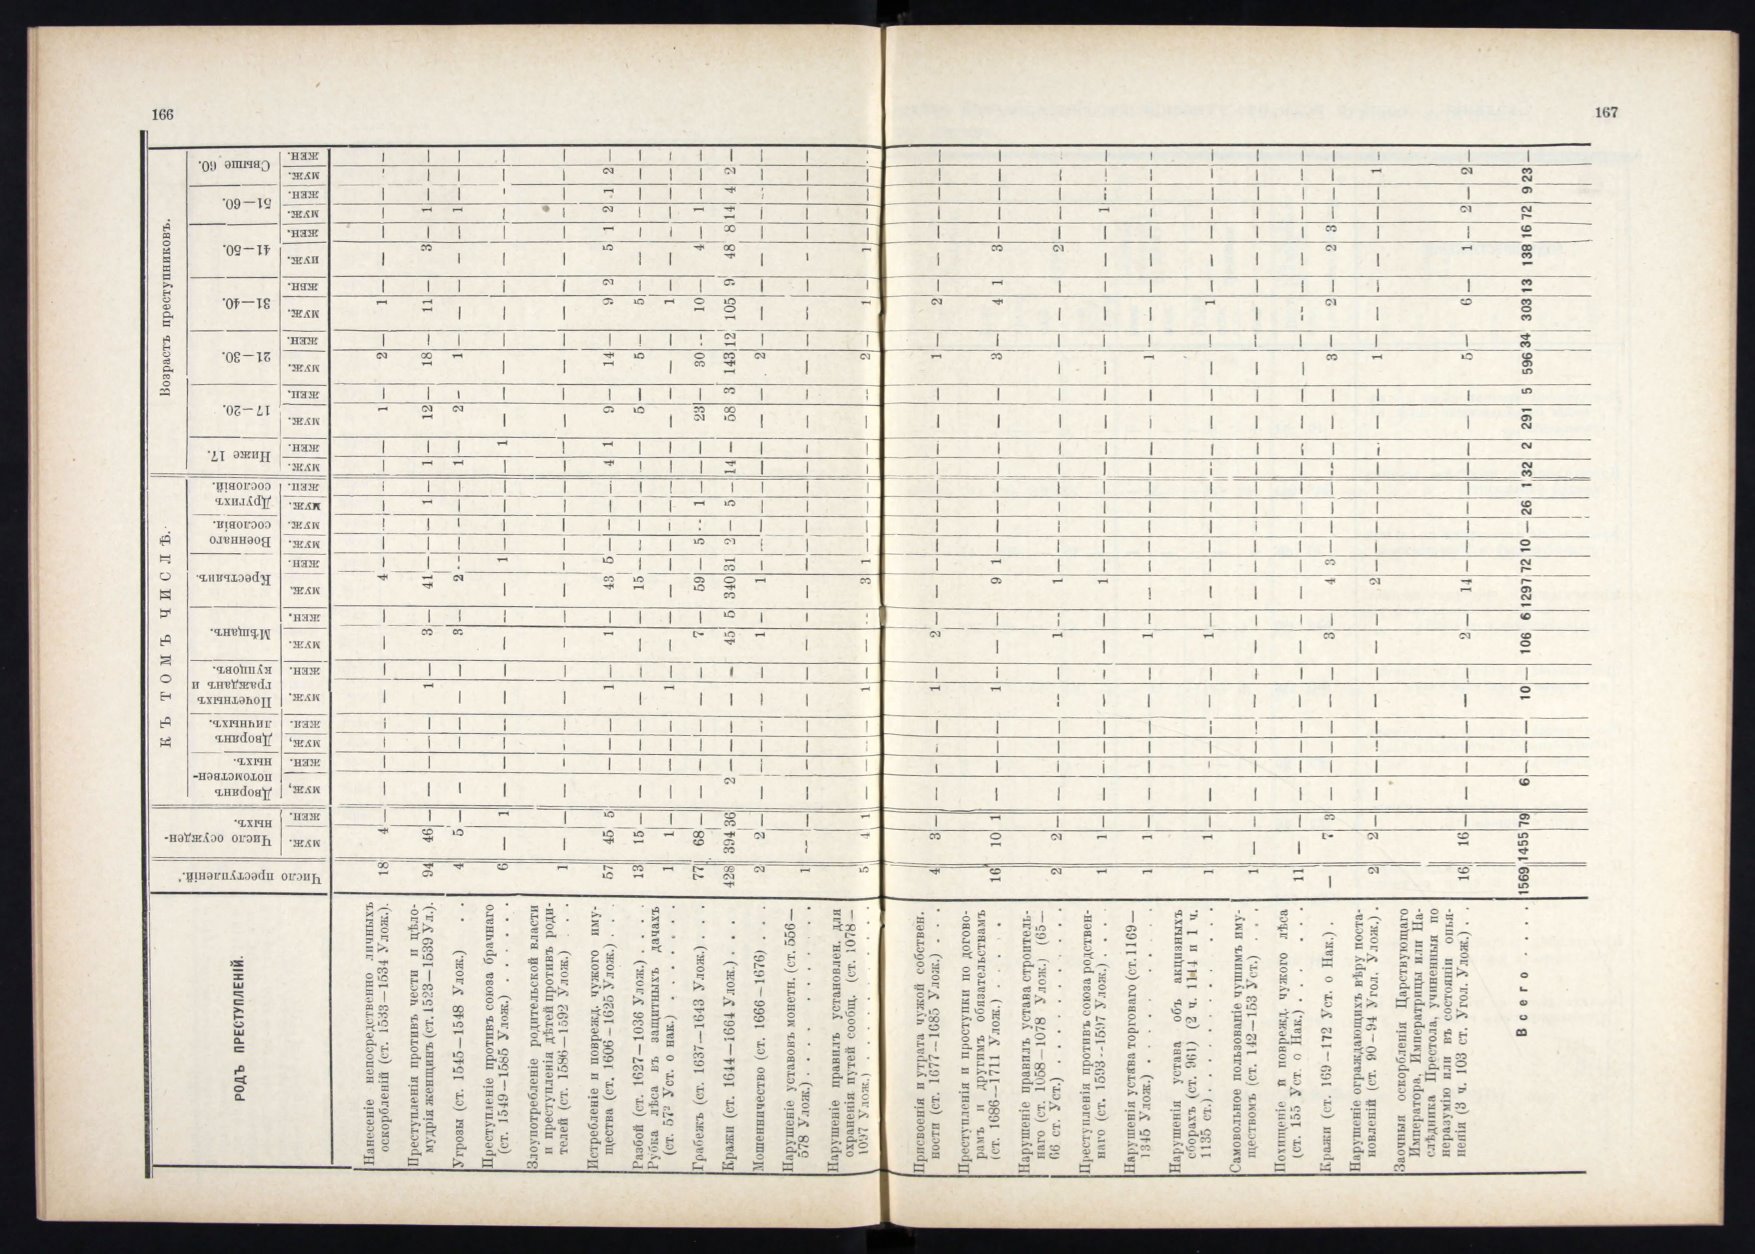 166
167
РОДЪ ПРЕСТУПЛЕНІЙ.
Число преступленій.
Число осужден-
ныхъ.
КЪ ТОМЪ ЧИСЛѢ.
Дворянъ
потомствен-
ныхъ.
Дворянъ
личныхъ.
Почетныхъ
гражданъ и
купцовъ.
Мѣщанъ.
Крестьянъ.
Военнаго
сословія.
Другихъ
сословій.
Возрастъ преступниковъ.
Ниже 17.
17—20.
21—30.
31—40.
41—50.
51—60.
Свыше 60.
муж. жен. муж. жен. муж. жен. муж. жен. муж. жен. муж. жен. муж. муж. муж. жен. муж. жен. муж. жен. муж. жен. муж. жен. муж. жен. муж. жен. муж. жен.
Нанесеніе непосредственно личныхъ
оскорбленій (ст. 1533—1534 Улож.). 18 4 — — — — — — — — — 4 — — — — — — — 1 — 2 — 1 — — — — — — —
Преступленія противъ чести и цѣло-
мудрія женщинъ (ст. 1523—1539 Ул.). 94 46 — — — — — 1 — 3 — 41 — — — 1 — 1 — 12 — 18 — 11 — 3 — 1 — — —
Угрозы (ст. 1545—1548 Улож.) . . 4 5 — — — — — — — 3 — 2 — — — — — 1 — 2 — 1 — — — — — 1 — — —
Преступленіе противъ союза брачнаго
(ст. 1549—1585 Улож.) . . . . . . 6 — 1 — — — — — — — — — 1 — — — — — 1 — — — — — — — — — — — —
Злоупотребленіе родительской власти
и преступленія дѣтей противъ роди-
телей (ст. 1586—1592 Улож.) . . . 1 — — — — — — — — — — — — — — — — — — — — — — — — — — — — — —
Истребленіе и поврежд. чужого иму-
щества (ст. 1606—1625 Улож.) . . . 57 45 5 — — — — 1 — 1 — 43 5 — — — — 4 1 9 — 14 — 9 2 5 1 2 1 2 —
Разбой (ст. 1627—1036 Улож.) . . . . 13 15 — — — — — — — — — 15 — — — — — — — 5 — 5 — 5 — — — — — — —
Рубка лѣса въ защитныхъ дачахъ
(ст. 57² Уст. о нак.) . . . . . . 1 1 — — — — — 1 — — — — — — — — — — — — — — — 1 — — — — — — —
Грабежъ (ст. 1637—1643 Улож.) . . . 77 68 — — — — — — — 7 — 59 — 5 — 1 — — — 23 — 30 — 10 — 4 — 1 — — —
Кражи (ст. 1644—1664 Улож.) . . . . 428 394 36 2 — — — — — 45 5 340 31 2 — 5 — 14 — 58 3 143 12 105 9 48 8 14 4 2 —
Мошенничество (ст. 1666—1676) . . . 2 2 — — — — — — — 1 — 1 — — — — — — — — — 2 — — — — — — — — —
Нарушеніе уставовъ монетн. (ст. 556—
578 Улож.) . . . . . . . . 1 — — — — — — — — — — — — — — — — — — — — — — — — — — — — — —
Нарушеніе правилъ установлен. для
охраненія путей сообщ. (ст. 1078—
1097 Улож.) . . . . . . . . 5 4 1 — — — — 1 — — — 3 1 — — — — — — — — 2 — 1 — 1 — — — — —
Присвоенія и утрата чужой собствен.
ности (ст. 1677—1685 Улож.) . . . 4 3 — — — — — 1 — 2 — — — — — — — — — — — 1 — 2 — — — — — — —
Преступленія и проступки по догово-
рамъ и другимъ обязательствамъ
(ст. 1686—1711 Улож.) . . . . . 16 10 1 — — — — 1 — — — 9 1 — — — — — — — — 3 — 4 1 3 — — — — —
Нарушеніе правилъ устава строитель-
наго (ст. 1058—1078 Улож.) (65—
66 ст. Уст.) . . . . . . . . 2 2 — — — — — — — 1 — 1 — — — — — — — — — — — — — 2 — — — — —
Преступленія противъ союза родствен-
наго (ст. 1593—1597 Улож.) . . . . 1 1 — — — — — — — — — 1 — — — — — — — — — — — — — — — 1 — — —
Нарушенія устява торговаго (ст. 1169—
1345 Улож.) . . . . . . . . 1 1 — — — — — — — 1 — — — — — — — — — — — 1 — — — — — — — — —
Нарушенія устава объ акцизныхъ
сборахъ (ст. 961) (2 ч. 1144 и 1 ч.
1135 ст.) . . . . . . . . 1 1 — — — — — — — 1 — — — — — — — — — — — — — 1 — — — — — — —
Самовольное пользованіе чущимъ иму-
ществомъ (ст. 142—153 Уст.) . . . 1 — — — — — — — — — — — — — — — — — — — — — — — — — — — — — —
Похищеніе и поврежд. чужого лѣса
(ст. 155 Уст. о Нак.) . . . . . . 11 — — — — — — — — — — — — — — — — — — — — — — — — — — — — — —
Кражи (ст. 169—172 Уст. о Нак.) . — 7 3 — — — — — — 3 — 4 3 — — — — — — — — 3 — 2 — 2 3 — — — —
Нарушеніе ограждающихъ вѣру поста-
новленій (ст. 90—94 Угол. Улож.) . 2 2 — — — — — — — — — 2 — — — — — — — — — 1 — — — — — — — 1 —
Заочныя оскорбленія Царствующаго
Императора, Императрицы или На-
слѣдника Престола, учиненныя по
неразумію или въ состояніи опья-
ненія (3 ч. 103 ст. Угол. Улож.) . . 16 16 — — — — — — — 2 — 14 — — — — — — — — — 5 — 6 — 1 — 2 — 2 —
Всего . . . . . 1569 1455 79 6 — — — 10 — 106 6 1297 72 10 — 26 1 32 2 291 5 596 34 303 13 138 16 72 9 23 —